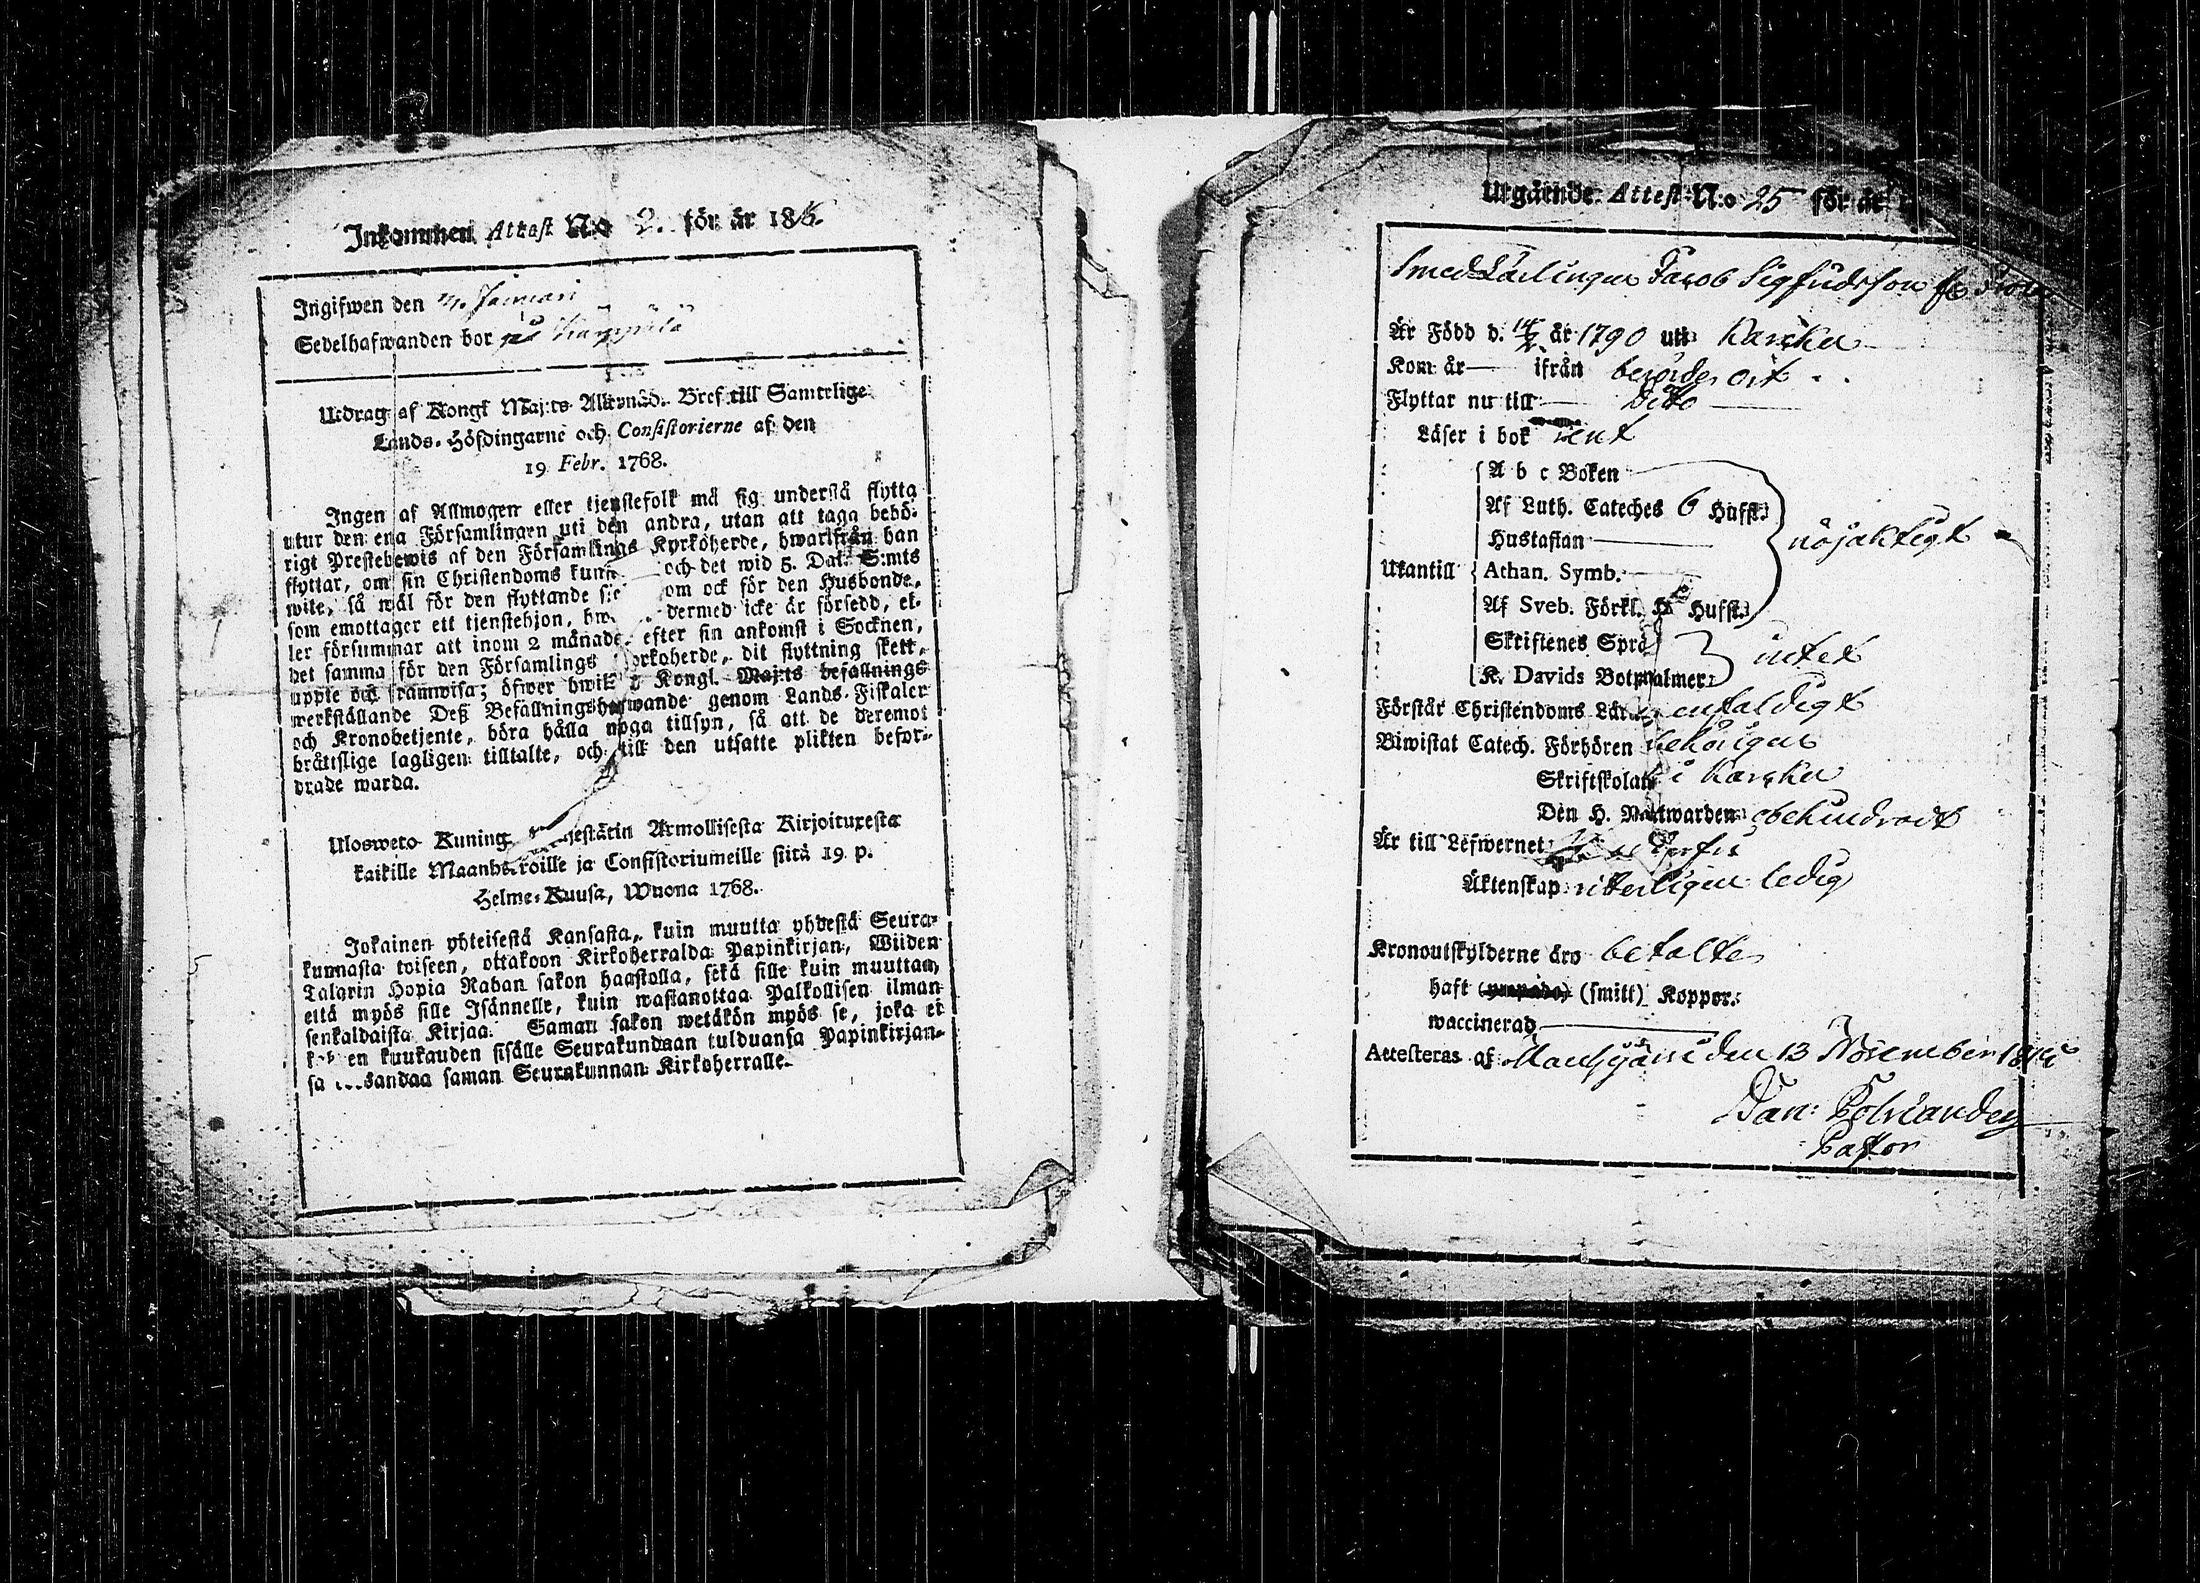 Inkommen Attest N:o 2. för år 18
Ingifwen den Januari
Sedelhafwanden bor på
Utdrag af Kongl Maj:ts Allernåd. Bref till Samtelige
Lands-Höfdingarne och Consistorierne af den
19 Febr. 1768.
Ingen af Allmogen eller tjenstefolk må sig understå flytta
utur den ena Församlingen uti den andra, utan att taga behö-
rigt Prestebewis af den Församlings Kyrkoherde, hwarifrån han
flyttar, om sin Christendoms kun och det wid 5. Dal. S:mts
wite, så wäl för den flyttande som ock för den Husbonde,
som emottager ett tjenstehjon, dermed icke är försedd, el-
ler försummar att inom 2 månader efter sin ankomst i Socknen,
det samma för den Församlings Kyrkoherde, dit flyttning skett,
uppte och framwisa; öfwer hwilk Kongl. Maj:ts befallnings
werkställande Deß Befallningshafwande genom Lands-Fiskaler
och Kronobetjente, böra hålla noga tillsyn, så att de deremot
bråttslige lagligen tilltalte, och till den utsatte plikten befor-
drade warda.
Ulosweto Kuning. Majestätin Armollisesta Kirjoituxesta
kaikille Maanherroille ja Consistoriumeille siitä 19 p.
Helme-Kuusa, Wuona 1768.
Jokainen yhteisestä Kansasta, kuin muutta yhdestä Seura-
kunnasta toiseen, ottakoon Kirkoherralda Papinkirjan, Wiiden
Talarin Hopia Rahan sakon haastolla, sekä sille kuin muuttaa,
että myös sille Isännelle, kuin wastanottaa Palkollisen ilman
senkaldaista Kirjaa. Saman sakon wetäkön myös se, joka ei
en kuukauden sisälle Seurakundaan tulduansa Papinkirjan-
sa sandaa saman Seurakunnan Kirkoherralle.
Utgående Attest N:o 25 för år
Smed Lärlingen Jacob Sigfridsson
Är Född d. 14/2 år 1790 uti Karcku
Kom år — ifrån berörde ort
Flyttar nu till — Dito —
Läser i bok rent
A b c Boken
Af Luth. Cateches 6 Hufst.
Hustaflan — nöjaktigt
Utantill Athan. Symb.
Af Sveb. Förkl. Hufst.
Skriftenes Språ
K. Davids Botpsalmer intet
Förstår Christendoms Lär enfaldigt
Biwistat Catech. Förhören behörigen
Skriftskolan i Karcku
Den H. Nattwarden obehindradt
Är till Lefwernet
Äktenskap ledig
Kronoutskylderne äro betalte
haft (smitt) Koppor.
waccinerad —
Attesteras af den 13 November
Dan:
Pastor